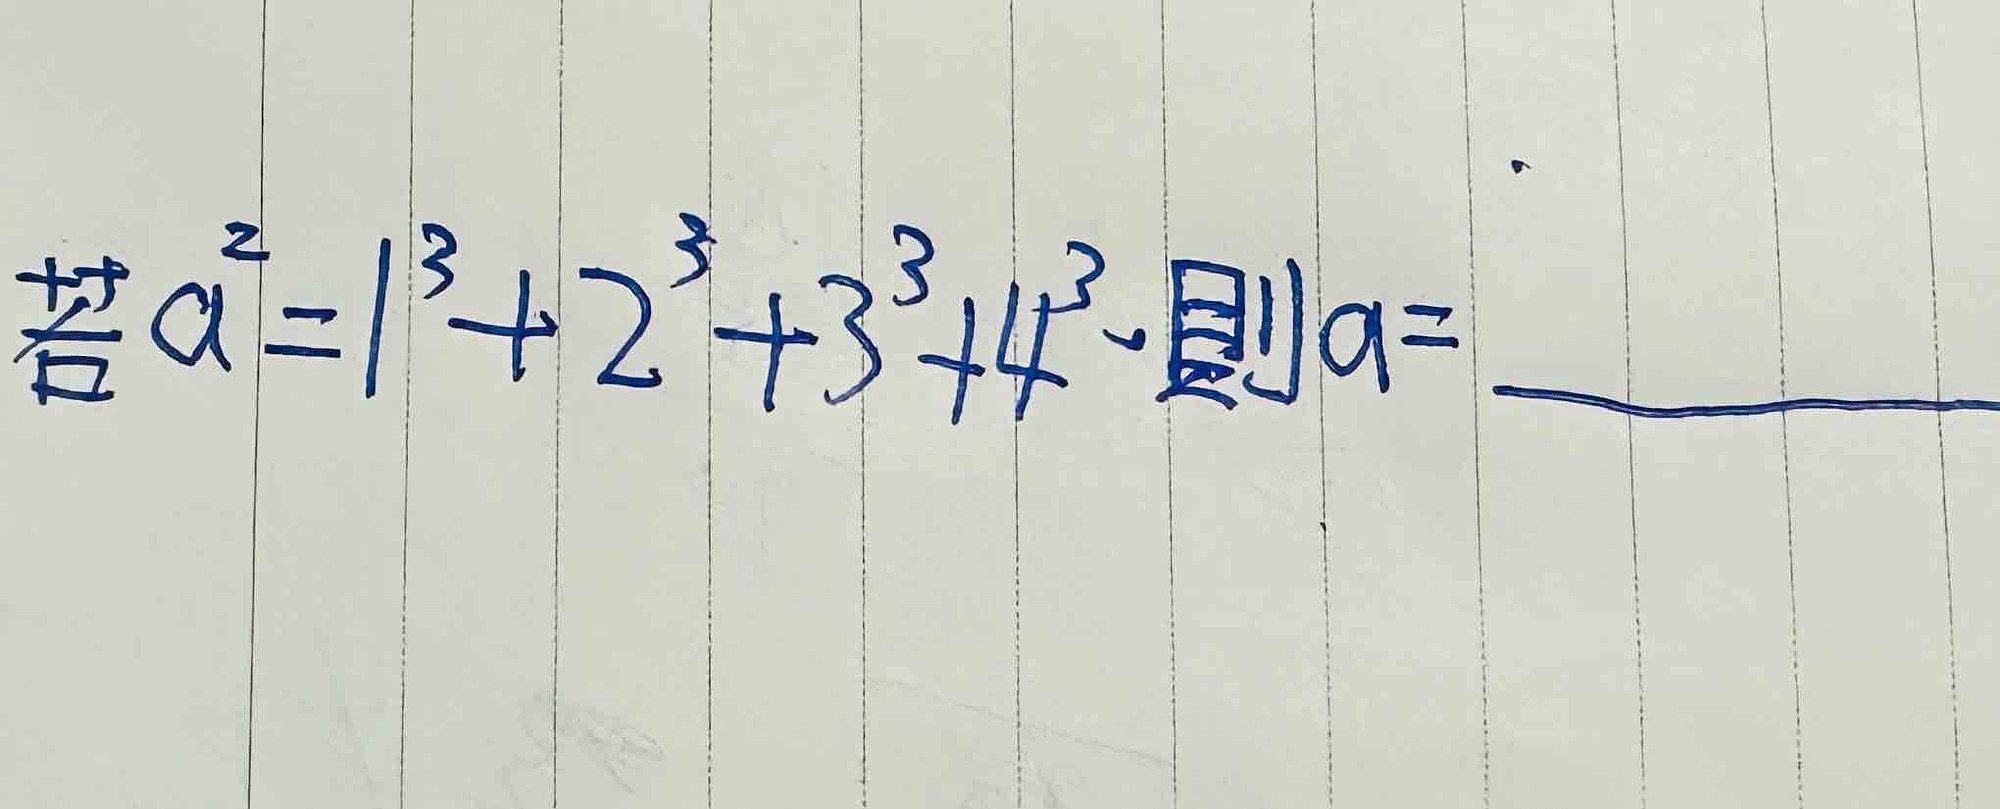 若a²=1³+2³+3³+4³、則a=______